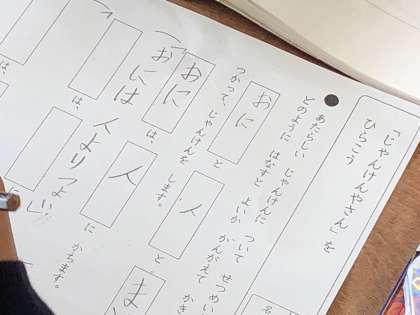 「じゃんけんやさん」を
ひらこう
名
あたらしい じゃんけんに ついて せつめい
どのように はなすと よいか かんがえて かき
おに と 人 と ま
つかって、じゃんけんを します。
おに は、 人 に かちます。
おには 人より つよい
は、
は、